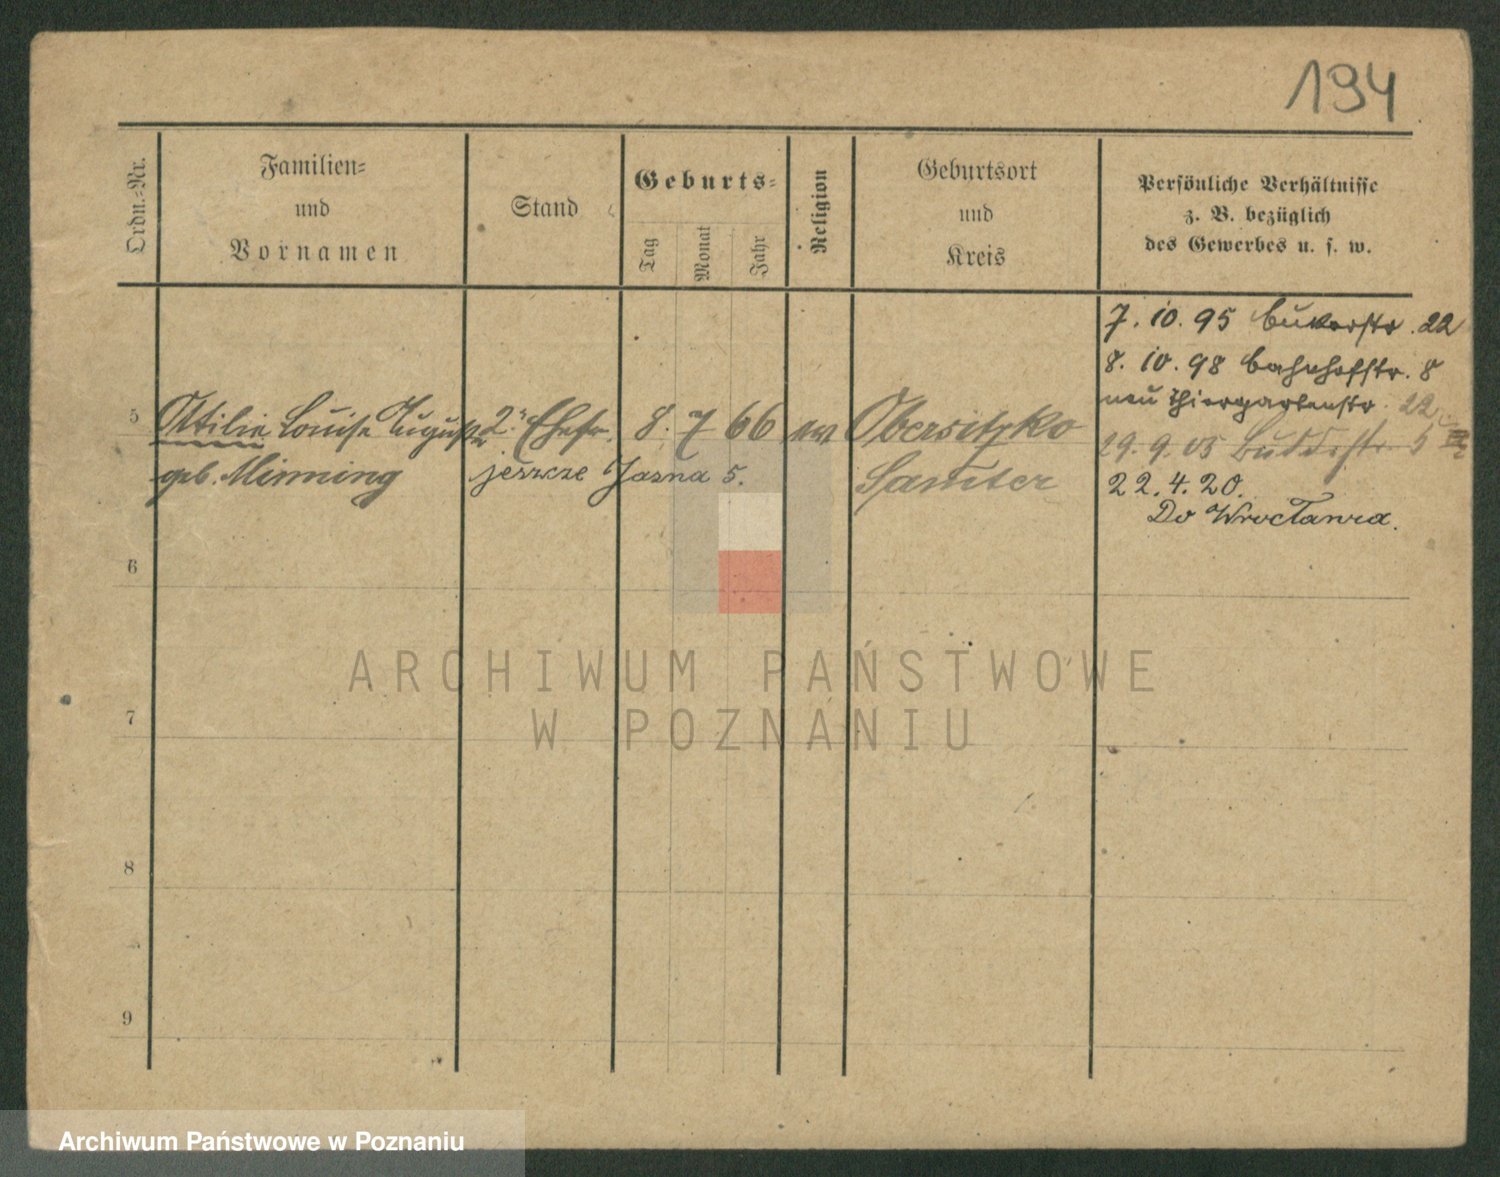 194
Ordn.-Nr.
Familien-
und
Vornamen
Stand
Geburts-
Tag
Monat
Jahr
Religion
Geburtsort
und
Kreis
Persönliche Verhältnisse
z. B. bezüglich
des Gewerbes u. s. w.
7. 10. 95 Bukerstr. 22
8. 10. 98 Bahnhofstr. 8
neu Thiergartenstr. 22
5 Ottilie Louise Auguste 2te Ehefr. 8. 7 66 ev Obersitzko
29. 9. 05 Buddestr. 5 III
geb. Minning jeszcze Jasna 5. Samter
22. 4. 20.
Do Wrocławia.
6
7
8
9
ARCHIWUM PAŃSTWOWE
W POZNANIU
Archiwum Państwowe w Poznaniu